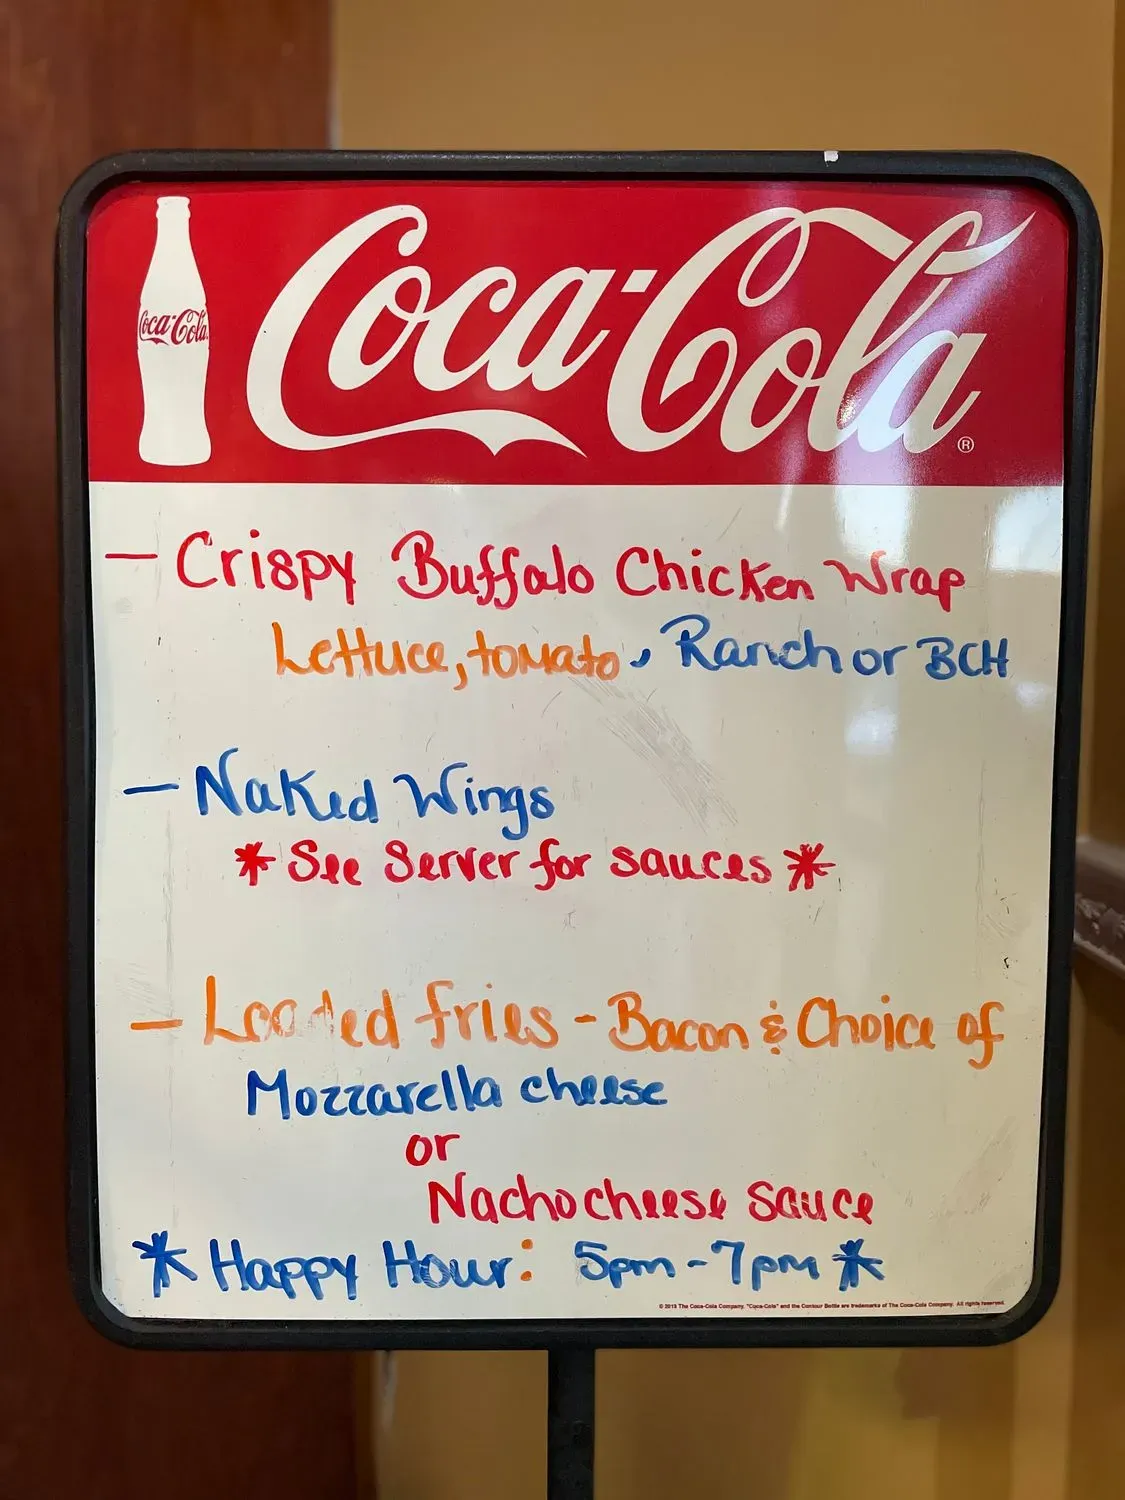 Coca-Cola
Coca-Cola®
— Crispy Buffalo Chicken Wrap
Lettuce, tomato, Ranch or BCH
— Naked Wings
* See Server for sauces *
— Loaded fries - Bacon & Choice of
Mozzarella cheese
or
Nacho cheese sauce
* Happy Hour: 5pm - 7pm *
© 2013 The Coca-Cola Company. "Coca-Cola" and the Contour Bottle are trademarks of The Coca-Cola Company. All rights reserved.